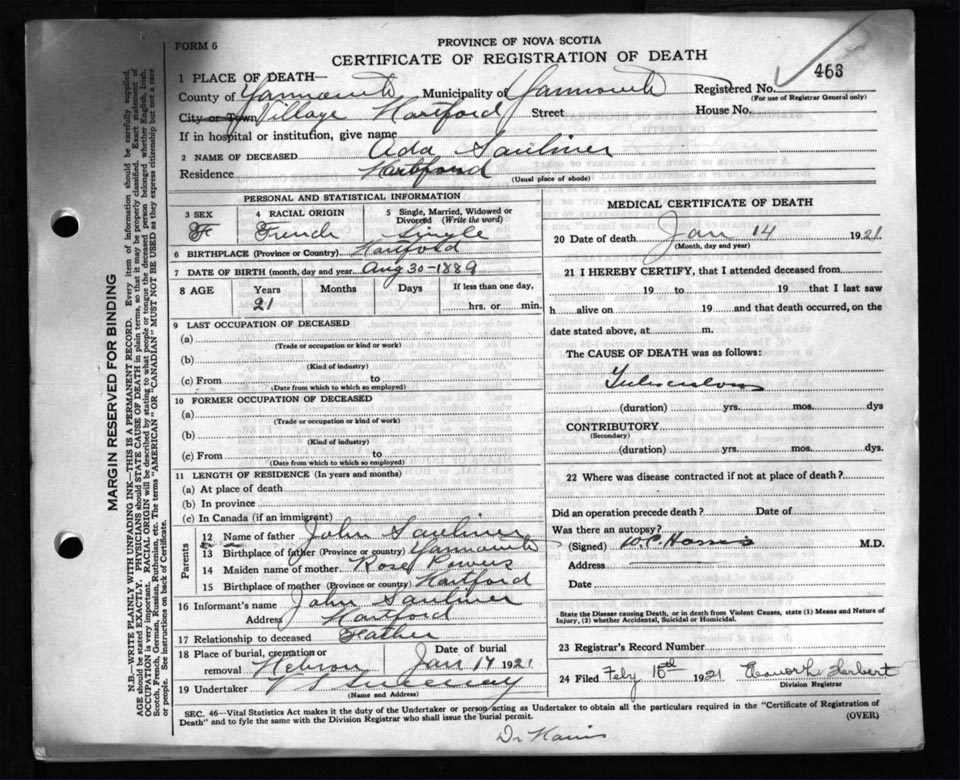 FORM 6
PROVINCE OF NOVA SCOTIA
CERTIFICATE OF REGISTRATION OF DEATH
463
1 PLACE OF DEATH—
County of Yarmouth Municipality of Yarmouth Registered No.
(For use of Registrar General only)
City or Town Village Hartford Street House No.
If in hospital or institution, give name
2 NAME OF DECEASED Ada Saulnier
Residence Hartford
(Usual place of abode)
PERSONAL AND STATISTICAL INFORMATION
3 SEX 4 RACIAL ORIGIN 5 Single, Married, Widowed or Divorced (Write the word)
F French Single
6 BIRTHPLACE (Province or Country) Hartford
7 DATE OF BIRTH (month, day and year Aug 30-1889
8 AGE Years Months Days If less than one day,
21 hrs. or min.
9 LAST OCCUPATION OF DECEASED
(a)
(Trade or occupation or kind or work)
(b)
(Kind of industry)
(c) From to
(Date from which to which so employed)
10 FORMER OCCUPATION OF DECEASED
(a)
(Trade or occupation or kind of work)
(b)
(Kind of industry)
(c) From to
(Date from which to which so employed)
11 LENGTH OF RESIDENCE (In years and months)
(a) At place of death
(b) In province
(c) In Canada (if an immigrant)
Parents
12 Name of father John Saulnier
13 Birthplace of father (Province or country) Yarmouth
14 Maiden name of mother Rose Powers
15 Birthplace of mother (Province or country) Hartford
16 Informant's name John Saulnier
Address Hartford
17 Relationship to deceased Father
18 Place of burial, cremation or Date of burial
removal Hebron Jan 17 1921
19 Undertaker Sweeney
(Name and Address)
MEDICAL CERTIFICATE OF DEATH
20 Date of death Jan 14 1921
(Month, day and year)
21 I HEREBY CERTIFY, that I attended deceased from
19 to 19 that I last saw
h alive on 19 and that death occurred, on the
date stated above, at m.
The CAUSE OF DEATH was as follows:
Tuberculosis
(duration) yrs. mos. dys
CONTRIBUTORY
(Secondary)
(duration) yrs. mos. dys
22 Where was disease contracted if not at place of death?
Did an operation precede death? Date of
Was there an autopsy?
(Signed) W.C. Harris M.D.
Address
Date
State the Disease causing Death, or in death from Violent Causes, state (1) Means and Nature of
Injury, (2) whether Accidental, Suicidal or Homicidal.
23 Registrar's Record Number
24 Filed Feby 15th 1921 Herbert
Division Registrar
SEC. 46—Vital Statistics Act makes it duty of the Undertaker or person acting as Undertaker to obtain all the particulars required in the "Certificate of Registration of
Death" and to fyle the same with the Division Registrar who shall issue the burial permit.
(OVER)
Dr Harris
MARGIN RESERVED FOR BINDING
N.B.—WRITE PLAINLY WITH UNFADING INK—THIS IS A PERMANENT RECORD. Every item of information should be carefully supplied.
AGE should be stated EXACTLY. PHYSICIANS should STATE CAUSE OF DEATH in plain terms, so that it may be properly classified. Exact statement of
OCCUPATION is very important. RACIAL ORIGIN will be described by stating to what people or tongue the deceased person belonged whether English, Irish,
Scotch, French, German, Russian, Ruthenian, etc. The terms "AMERICAN" OR "CANADIAN" MUST NOT BE USED as they express citizenship but not a race
or people. See instructions on back of Certificate.